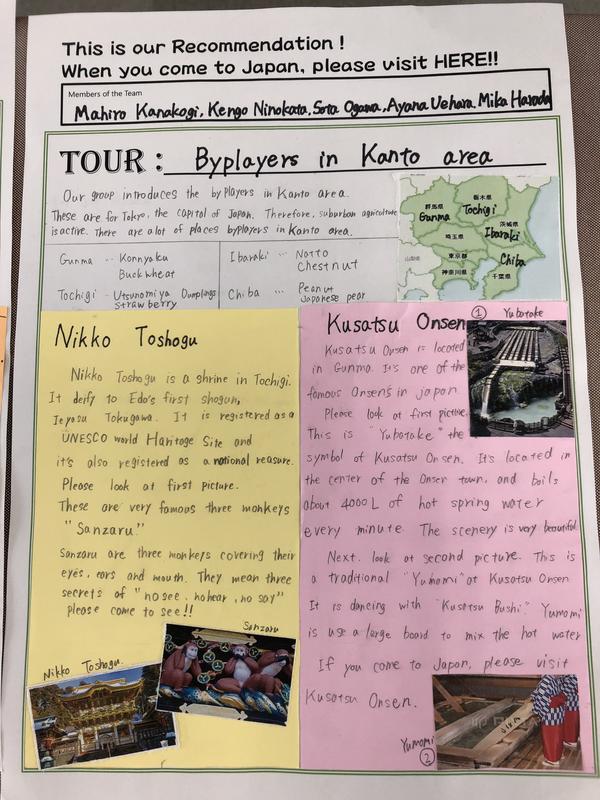 This is our Recommendation !
When you come to Japan, please visit HERE!!
Members of the Team
Mahiro Kanakogi, Kengo Ninokata, Sota Ogawa, Ayana Uehara, Mika Harada
TOUR : Byplayers in Kanto area
Our group introduces the byplayers in Kanto area.
These are for Tokyo, the capital of Japan. Therefore, suburban agriculture
is active. There are a lot of places byplayers in Kanto area.
Gunma ... Konnyaku
Buckwheat
Tochigi ... Utsunomiya Dumplings
Strawberry
Ibaraki ... Natto
Chestnut
Chiba ... Peanut
Japanese pear
群馬県
Gunma
栃木県
Tochigi
茨城県
Ibaraki
埼玉県
山梨県
東京都
Chiba
神奈川県
千葉県
Nikko Toshogu
Nikko Toshogu is a shrine in Tochigi.
It deify to Edo's first shogun,
Ieyasu Tokugawa. It is registered as a
UNESCO world Haritage Site and
it's also registered as a national reasure.
Please look at first picture.
These are very famous three monkeys
"Sanzaru."
Sanzaru are three monkeys covering their
eyes, ears and mouth. They mean three
secrets of "no see, no hear, no say"
please come to see!!
Nikko Toshogu.
Sanzaru
Kusatsu Onsen
① Yubatake
Kusatsu Onsen is located
in Gunma. It's one of the
famous Onsens in japan.
Please look at first picture.
This is "Yubatake" the
symbol of Kusatsu Onsen. It's located in
the center of the Onsen town, and boils
about 4000 L of hot spring water
every minute. The scenery is very beautiful.
Next, look at second picture. This is
a traditional "Yumomi" at Kusatsu Onsen
It is dancing with "Kusatsu Bushi." Yumomi
is use a large board to mix the hot water
If you come to Japan, please visit
Kusatsu Onsen.
Yumomi
②